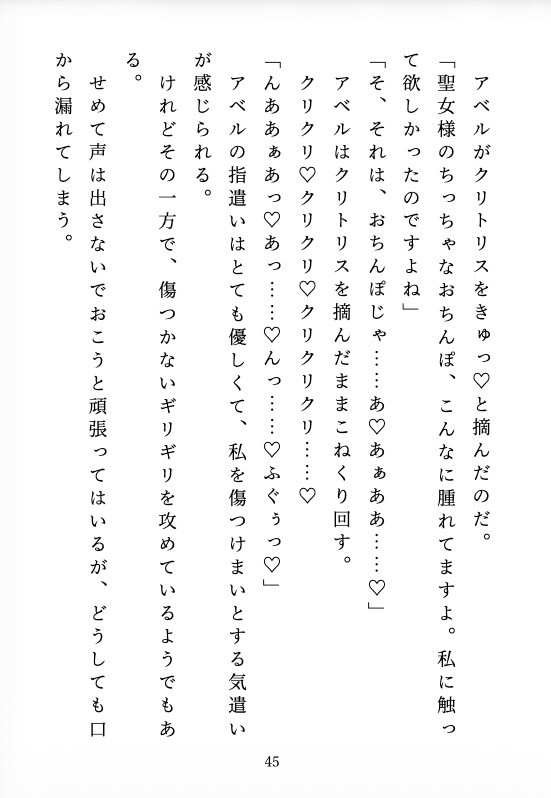 アベルがクリトリスをきゅっ♡と摘んだのだ。
「聖女様のちっちゃなおちんぽ、こんなに腫れてますよ。私に触っ
て欲しかったのですよね」
「そ、それは、おちんぽじゃ……あ♡あぁああ……♡」
アベルはクリトリスを摘んだままこねくり回す。
クリクリ♡クリクリ♡クリクリクリ……♡
「んああぁあっ♡あっ……♡んっ……♡ふぐぅっ♡」
アベルの指遣いはとても優しくて、私を傷つけまいとする気遣い
が感じられる。
けれどその一方で、傷つかないギリギリを攻めているようでもあ
る。
せめて声は出さないでおこうと頑張ってはいるが、どうしても口
から漏れてしまう。
45